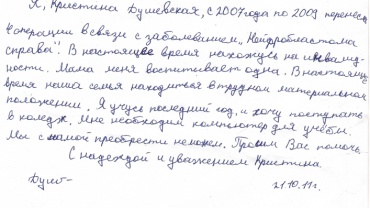 Я, Кристина Душевская, с 2007 года по 2009 перенесла
4 операции в связи с заболеванием „Нейробластома
справа". В настоящее время нахожусь на инвалид-
ности. Мама меня воспитывает одна. В настоящее
время наша семья находиться в трудном материальном
положении. Я учусь последний год, и хочу поступать
в коледж. Мне необходим компьютер для учёбы.
Мы с мамой преобрести не можем. Просим Вас помочь.
С надеждой и уважением Кристина.
21.10.11г.